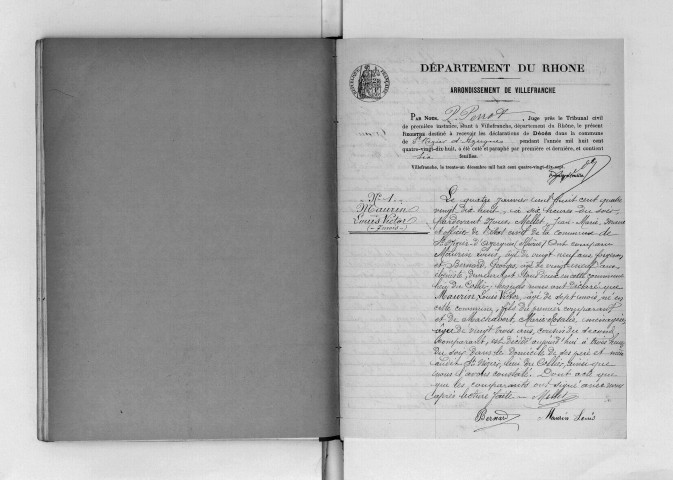 DÉPARTEMENT DU RHONE
ARRONDISSEMENT DE VILLEFRANCHE
PAR NOUS, P. Perrot, Juge près le Tribunal civil
de première instance, séant à Villefranche, département du Rhône, le présent
REGISTRE destiné à recevoir les déclarations de Décès dans la commune
de St Nizier d'Azergues pendant l'année mil huit cent
quatre-vingt-dix-huit, a été coté et paraphé par première et dernière, et contient
six feuilles.
Villefranche, le trente-un décembre mil huit cent quatre-vingt-dix-sept.
N° 1
Maurin
Louis Victor
Le quatre janvier mil huit cent quatre
vingt dix huit, à six heures du soir
Pardevant nous, Mellet, Jean Marie, maire
et officier de l'état civil de la commune de
St Nizier d'Azergues (Rhône) Ont comparu
Maurin Louis, âgé de vingt neuf ans,
et Bernard, Georges, âgé de vingt neuf ans,
demeurant tous deux en cette commune
lieu du lesquels nous ont déclaré que
Maurin Louis Victor, âgé de sept mois, né en
cette commune, fils du premier comparant
et de Marie ménagère
âgée de vingt trois ans, du second
comparant, est décédé aujourd'hui à trois heures
du soir dans le domicile de ses père et mère
audit St Nizier, lieu du ainsi que
nous l'avons constaté. Dont acte que
que les comparants ont signé avec nous
après lecture faite. Mellet
Bernard Maurin Louis